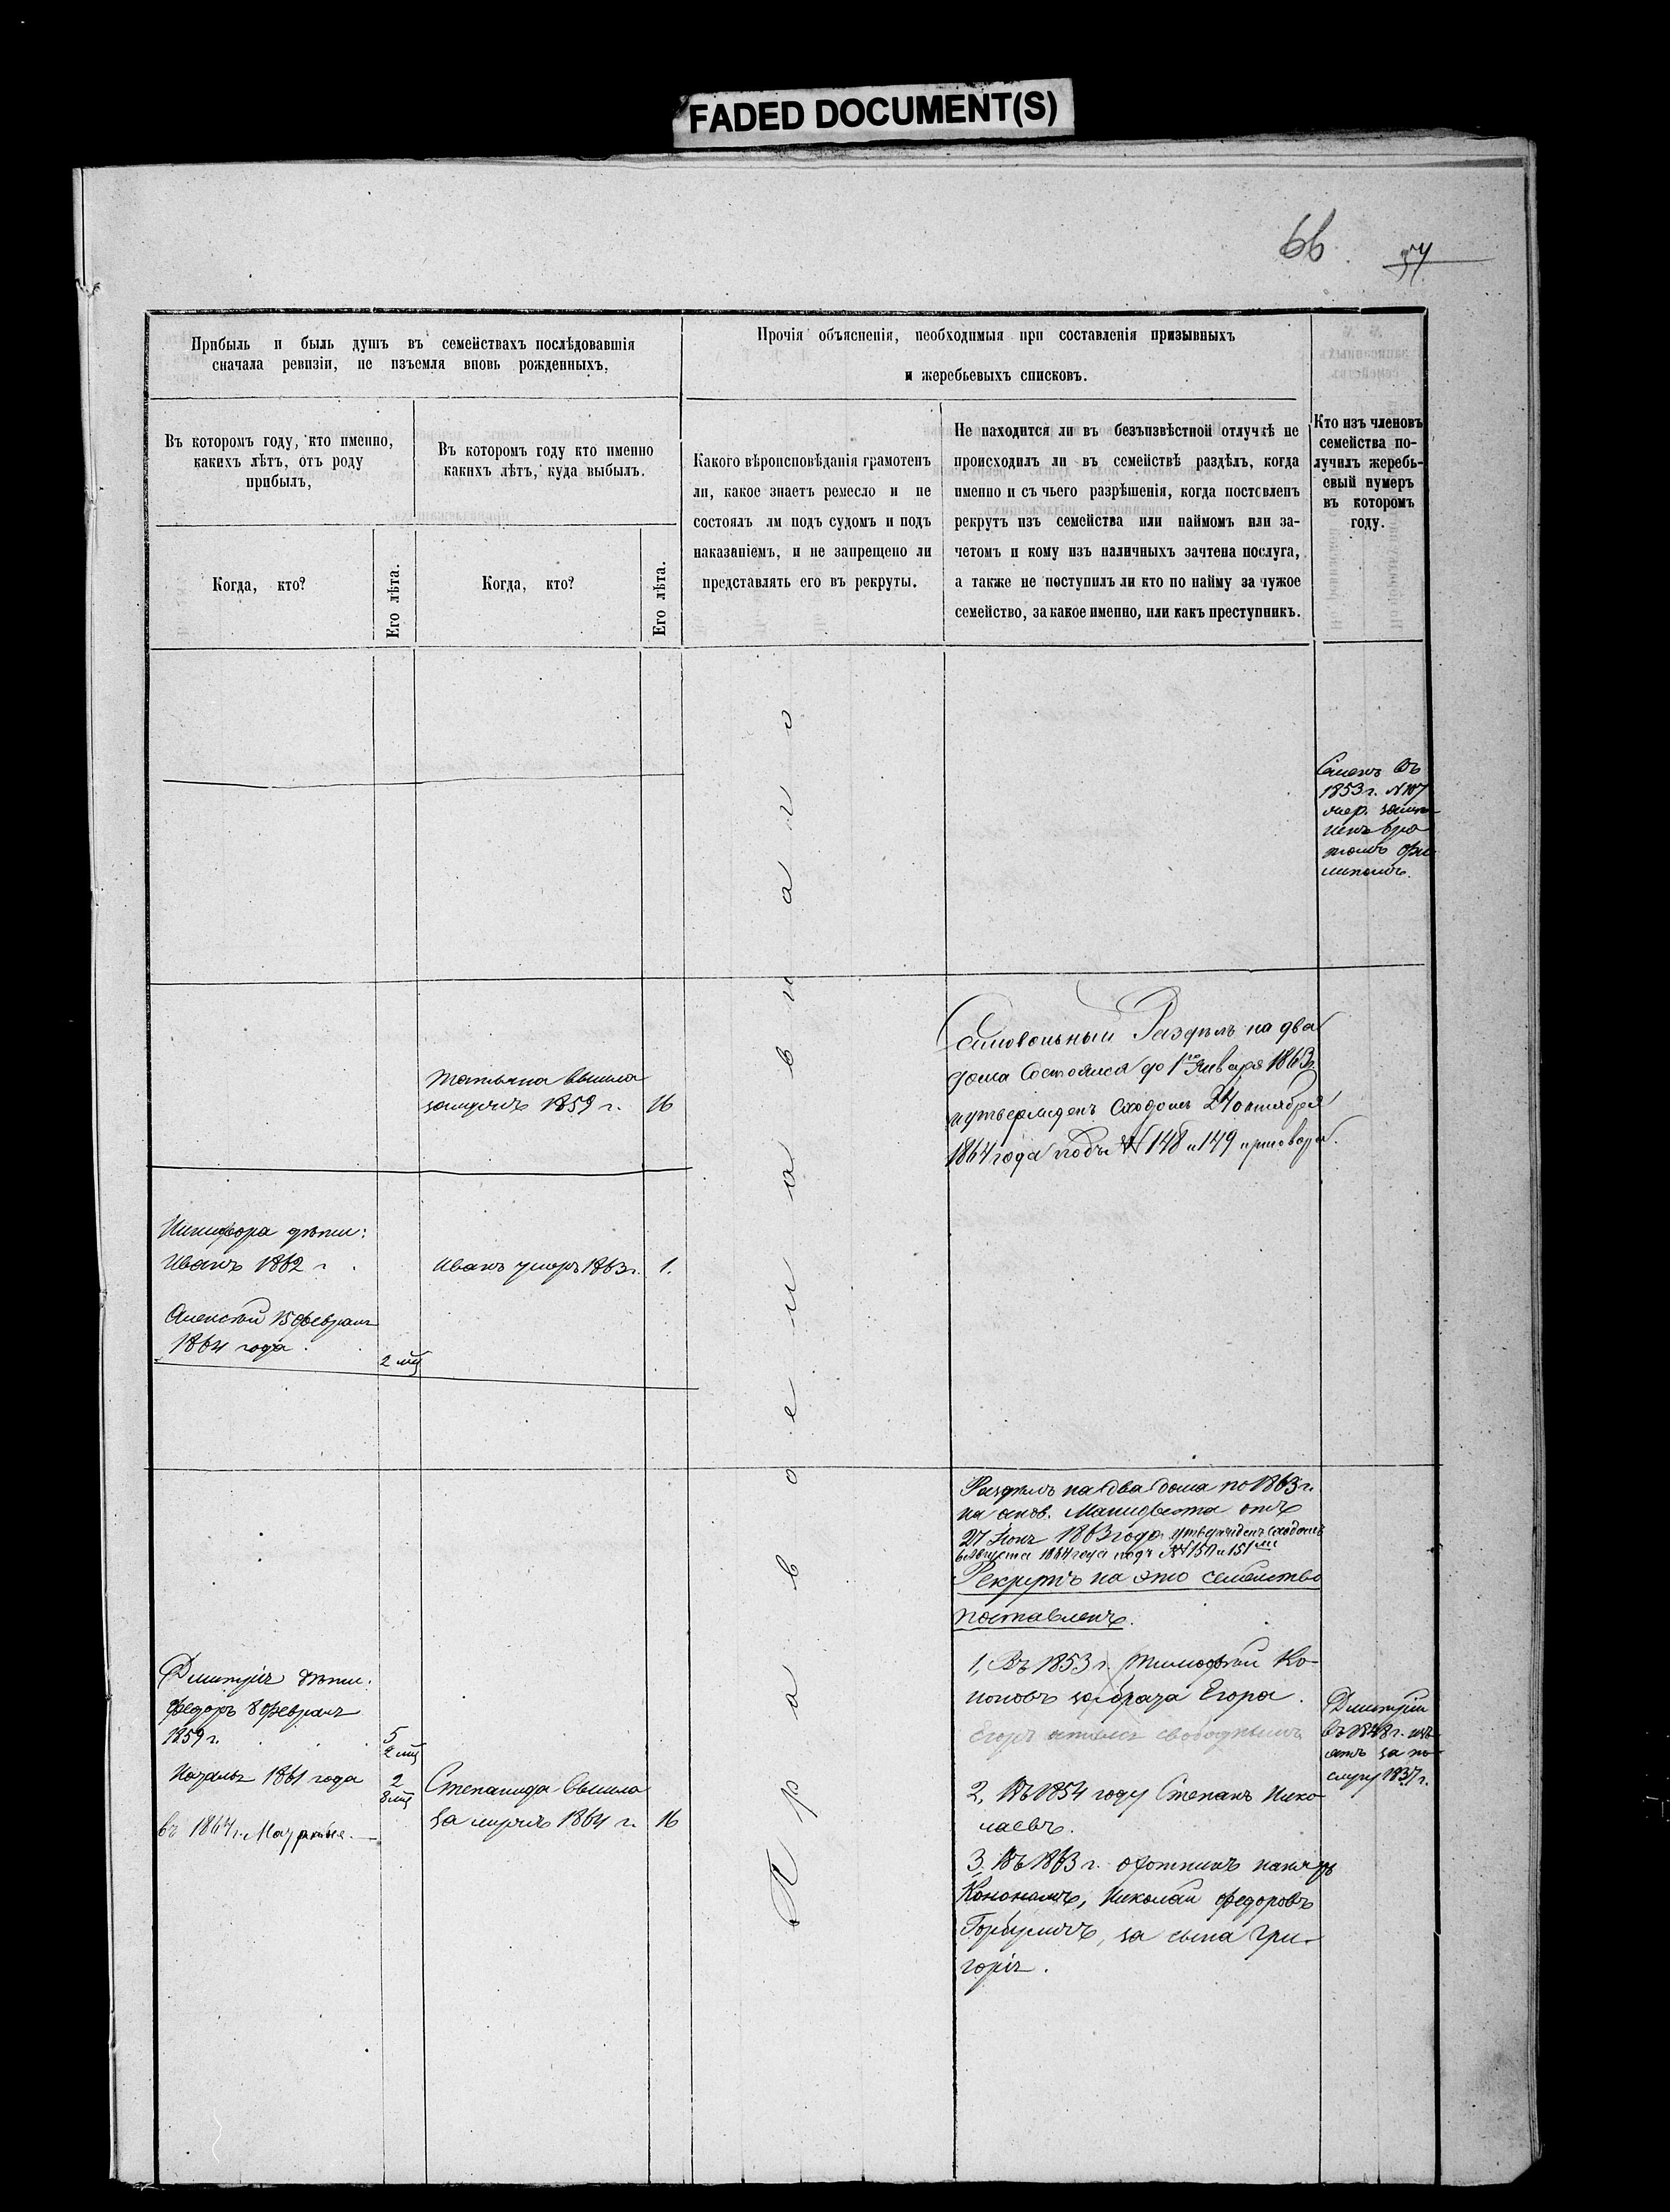 FADED DOCUMENT(S)
66.
Прибыль и быль душъ въ семействахъ послѣдовавшія
сначала ревизіи, не изъемля вновь рожденныхъ.
Въ которомъ году, кто именно,
какихъ лѣтъ, отъ роду
прибылъ,
Когда, кто?
Его лѣта.
Въ которомъ году кто именно
какихъ лѣтъ, куда выбылъ.
Когда, кто?
Его лѣта.
Прочія объясненія, необходимыя при составленія призывныхъ
и жеребьевыхъ списковъ.
Какого вѣроисповѣданія грамотенъ
ли, какое знаетъ ремесло и не
состоялъ лм подъ судомъ и подъ
наказаніемъ, и не запрещено ли
представлять его въ рекруты.
Не находится ли въ безъизвѣстной отлучкѣ не
происходилъ ли въ семействѣ раздѣлъ, когда
именно и съ чьего разрѣшенія, когда поствленъ
рекрутъ изъ семейства или наймомъ или за-
четомъ и кому изъ наличныхъ зачтена послуга,
а также не поступилъ ли кто по найму за чужое
семейство, за какое именно, или какъ преступникъ.
Кто изъ членовъ
семейства по-
лучилъ жеребь-
евый нумеръ
въ которомъ
году.
Семенъ Въ
1853 г. №107
братомъ Фи
липомъ.
Православнаго
Татьяна вышла
замужъ 1859 г. 16
Самовольный Раздѣлъ на два
дома Состоялся до 1го Января 1863г.
и утвержденъ Сходомъ 24 октября
1864 года подъ № 148 и 149 приговора.
Никифора дѣти:
Иванъ 1862 г.
Иванъ умеръ 1863г. 1.
Алексѣй 15 февраля
1864 года. 2 мц
Раздѣлъ на два дома по 1863 г.
на основ. Манифеста отъ
27 Іюня 1863 года утвержденъ сходомъ
Августа 1864 года подъ №№ 150 и 151ми
Рекрутъ на это семейство
поставленъ.
1, Въ 1853 г. Тимофѣй Ко-
ноновъ за брата Егора.
Егоръ
2, Въ 1854 году Степанъ Нико
лаевъ.
3, Въ 1863 г. охотникъ нанятъ
Кононамъ, Николай Федоровъ
за сына Гри-
горія.
Дмитрій
въ 1848 г. изъ-
ятъ за по-
слугу 1837 г.
Дмитрія дѣти:
Федоръ 8 февраля
1859 г. 5
2 мц
1861 года 2
8 мц
въ 1864 г.
Степанида вышла
за мужъ 1864 г. 16